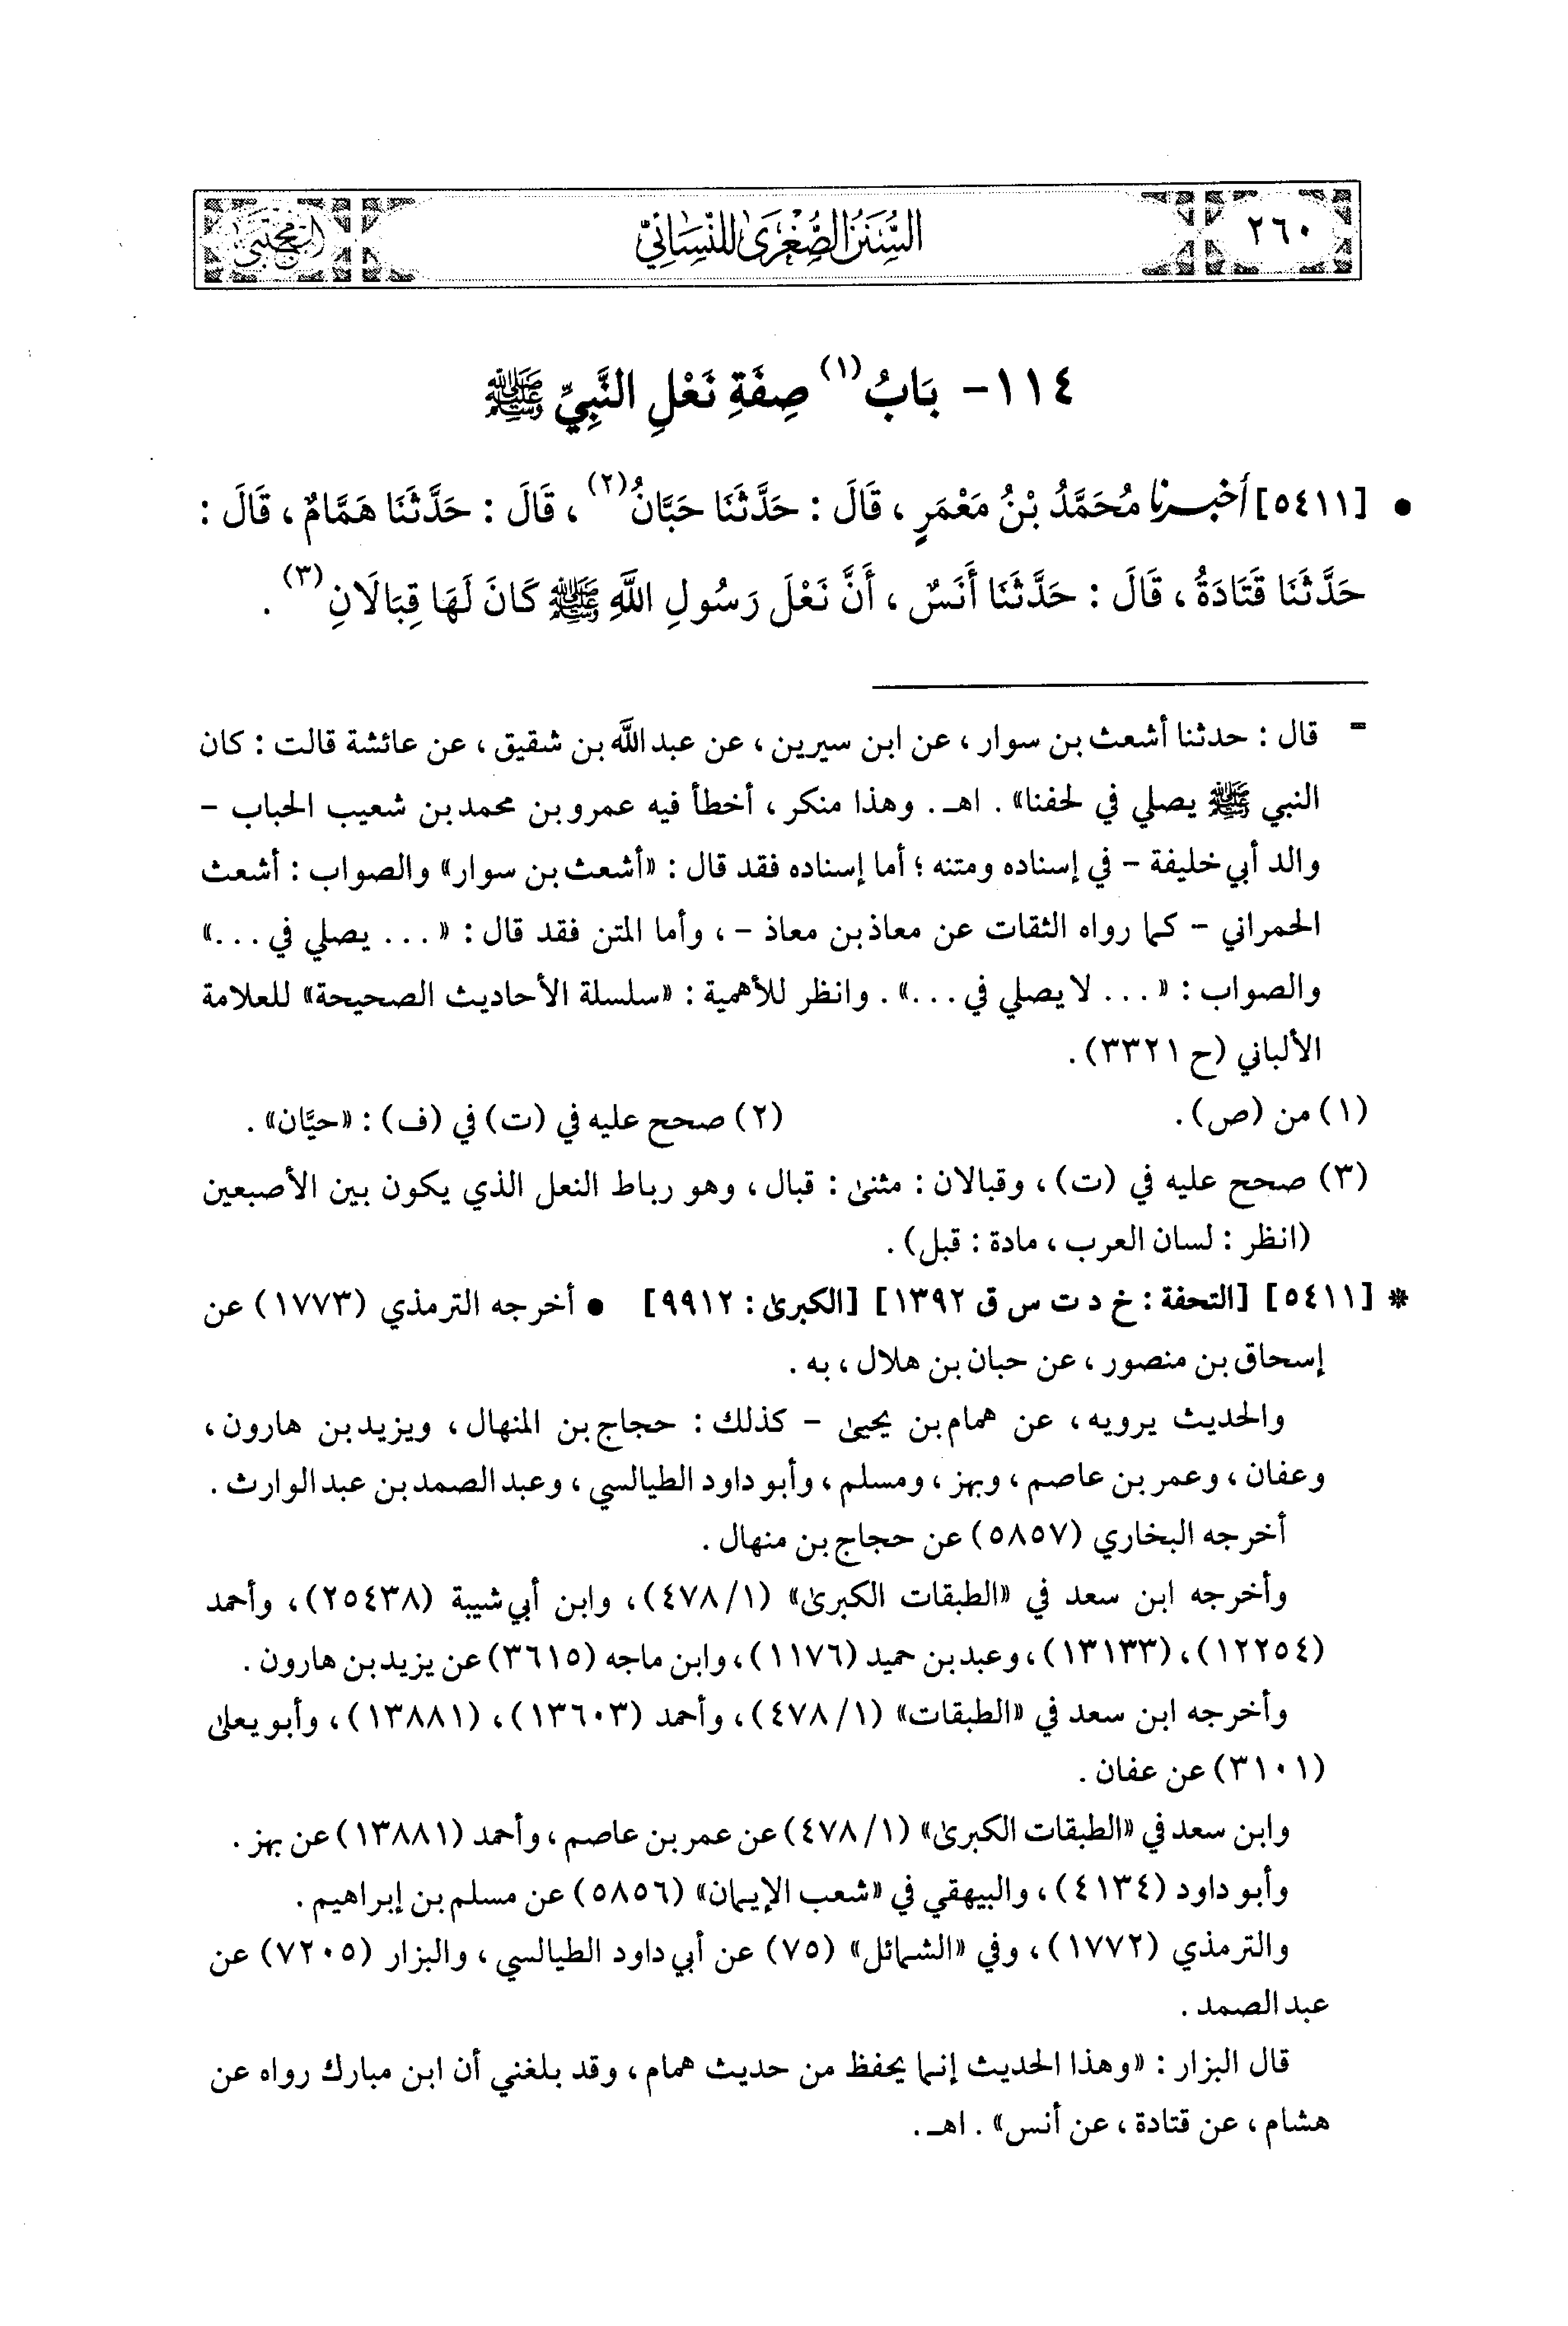 ٢٦٠ السُّنَنُ الصُّغْرَىٰ لِلنَّسَائِيِّ المجتبى
١١٤- بَابُ(١) صِفَةِ نَعْلِ النَّبِيِّ ﷺ
• [٥٤١١] أخبرنا مُحَمَّدُ بْنُ مَعْمَرٍ ، قَالَ : حَدَّثَنَا حَبَّانُ(٢) ، قَالَ : حَدَّثَنَا هَمَّامٌ ، قَالَ :
حَدَّثَنَا قَتَادَةُ ، قَالَ : حَدَّثَنَا أَنَسٌ ، أَنَّ نَعْلَ رَسُولِ اللَّهِ ﷺ كَانَ لَهَا قِبَالَانِ(٣) .
= قال : حدثنا أشعث بن سوار ، عن ابن سيرين ، عن عبد الله بن شقيق ، عن عائشة قالت : كان
النبي ﷺ يصلي في لحفنا» . اهـ . وهذا منكر ، أخطأ فيه عمرو بن محمد بن شعيب الحباب -
والد أبي خليفة - في إسناده ومتنه ؛ أما إسناده فقد قال : «أشعث بن سوار» والصواب : أشعث
الحمراني - كما رواه الثقات عن معاذ بن معاذ - ، وأما المتن فقد قال : « ... يصلي في ...»
والصواب : « ... لا يصلي في ...» . وانظر للأهمية : «سلسلة الأحاديث الصحيحة» للعلامة
الألباني (ح ٣٣٢١) .
(١) من (ص) . (٢) صحح عليه في (ت) في (ف) : «حيَّان» .
(٣) صحح عليه في (ت) ، وقبالان : مثنى : قبال ، وهو رباط النعل الذي يكون بين الأصبعين
(انظر : لسان العرب ، مادة : قبل) .
* [٥٤١١] [التحفة : خ د ت س ق ١٣٩٢] [الكبرىٰ : ٩٩١٢] • أخرجه الترمذي (١٧٧٣) عن
إسحاق بن منصور ، عن حبان بن هلال ، به .
والحديث يرويه ، عن همام بن يحيىٰ - كذلك : حجاج بن المنهال ، ويزيد بن هارون ،
وعفان ، وعمر بن عاصم ، وبهز ، ومسلم ، وأبو داود الطيالسي ، وعبد الصمد بن عبد الوارث .
أخرجه البخاري (٥٨٥٧) عن حجاج بن منهال .
وأخرجه ابن سعد في «الطبقات الكبرىٰ» (١/ ٤٧٨) ، وابن أبي شيبة (٢٥٤٣٨) ، وأحمد
(١٢٢٥٤) ، (١٣١٣٣) ، وعبد بن حميد (١١٧٦) ، وابن ماجه (٣٦١٥) عن يزيد بن هارون .
وأخرجه ابن سعد في «الطبقات» (١/ ٤٧٨) ، وأحمد (١٣٦٠٣) ، (١٣٨٨١) ، وأبو يعلىٰ
(٣١٠١) عن عفان .
وابن سعد في «الطبقات الكبرىٰ» (١/ ٤٧٨) عن عمر بن عاصم ، وأحمد (١٣٨٨١) عن بهز .
وأبو داود (٤١٣٤) ، والبيهقي في «شعب الإيمان» (٥٨٥٦) عن مسلم بن إبراهيم .
والترمذي (١٧٧٢) ، وفي «الشمائل» (٧٥) عن أبي داود الطيالسي ، والبزار (٧٢٠٥) عن
عبد الصمد .
قال البزار : «وهذا الحديث إنما يحفظ من حديث همام ، وقد بلغني أن ابن مبارك رواه عن
هشام ، عن قتادة ، عن أنس» . اهـ .